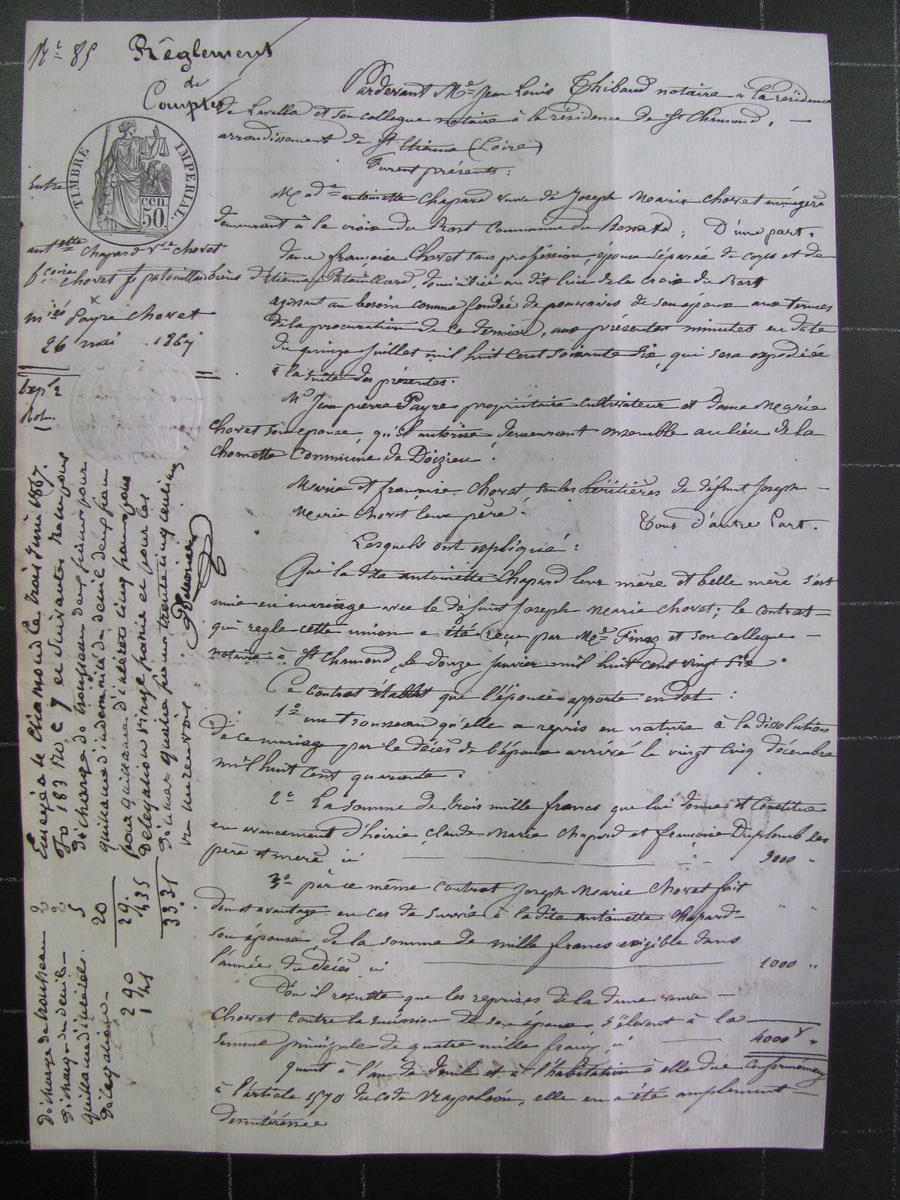 N° 85 Règlement
de
Comptes
TIMBRE IMPERIAL
50 CEN
Entre
antette Chapard Vve Chovet
fcoise Chovet fe patouillard
miés Payre Chovet
26 mai 1867
Expé 2
Rol.
Pardevant Me Jean Louis Thibaud notaire à la résidence
de et son collègue notaire à la résidence de St Chamond,
arrondissement de St Etienne (Loire)
Furent présents :
Made antoinette Chapard veuve de Joseph Marie Chovet ménagère
demeurant à la croix du Commune du ; D'une part.
dame françoise Chovet sans profession, épouse séparée de corps et de
biens d'Etienne Patouillard, domiciliée au dit lieu de la Croix du
agissant au besoin comme fondée de pouvoirs de son époux aux termes
de la procuration de ce dernier, aux présentes minutes en date
du quinze juillet mil huit cent soixante six, qui sera expédiée
à la suite des présentes.
Mr Jean pierre Payre propriétaire cultivateur et dame Marie
Chovet son épouse, qu'il autorise demeurant ensemble au lieu de la
Chomette Commune de Doizieu.
Marie et françoise Chovet seules héritières de défunt Joseph
Marie Chovet leur père. Tous d'autre Part.
Lesquels ont expliqué :
Que la dite antoinette Chapard leur mère et belle mère s'est
unie en mariage avec le défunt Joseph Marie Chovet ; le contrat
qui règle cette union a été reçu par Me Finaz et son collègue
notaire à St Chamond, le douze janvier mil huit cent vingt six.
Ce contrat établit que l'épouse apporte en dot :
1° un trousseau qu'elle a repris en nature à la dissolution
de ce mariage par le décès de l'époux arrivé le vingt cinq décembre
mil huit cent quarante.
2° La somme de trois mille francs que lui donne et constitue
en avancement d'hoirie Claude Marie Chapard et françoise ses
père et mère ci 3000 "
3° par ce même contrat Joseph Marie Chovet fait
don et avantage en cas de survie à la dite antoinette Chapard
son épouse, de la somme de mille francs exigible dans
l'année du décès ci 1000 "
D'où il résulte que les reprises de la dame veuve
Chovet contre la succession de son époux, s'élèvent à la
somme principale de quatre mille francs, ci 4000 "
quant à l'an de deuil et à l'habitation à elle due conformément
à l'article 1570 du code Napoléon, elle en a été amplement
désintéressée
Enregé à St Chamond le trois juin 1867.
fo 183 Ro C 7 et suivantes Reçu pour
décharge de trousseau deux francs pour
quittance d'indemnité de deuil deux francs
pour quittance d'intérêts cinq francs pour
délégation vingt francs et pour les
décimes quatre francs trente cinq centimes
décharge de trousseau 2
décharge de deuil 2
quittance d'intérêts 5
délégation 20
29.
4.35
33.35
2 90
1 45